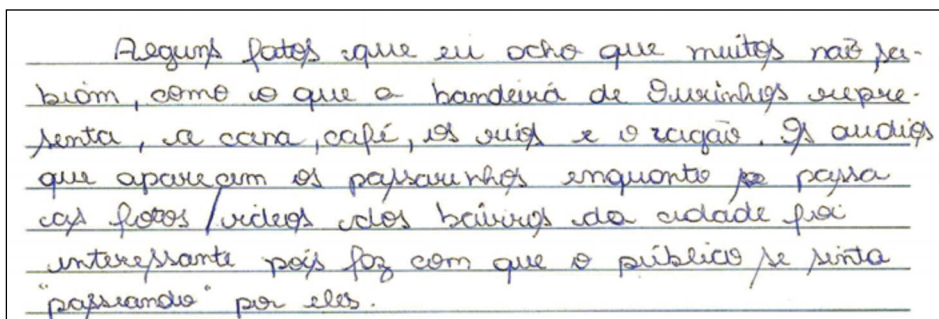 Alguns fatos que eu acho que muitos não sa-
biam, como o que a bandeira de Ourinhos repre-
senta, a cana, café, os rios e o vagão. Os audios
que aparecem os passarinhos enquanto passa
as fotos/videos dos bairros da cidade foi
interessante pois faz com que o público se sinta
"passeando" por eles.